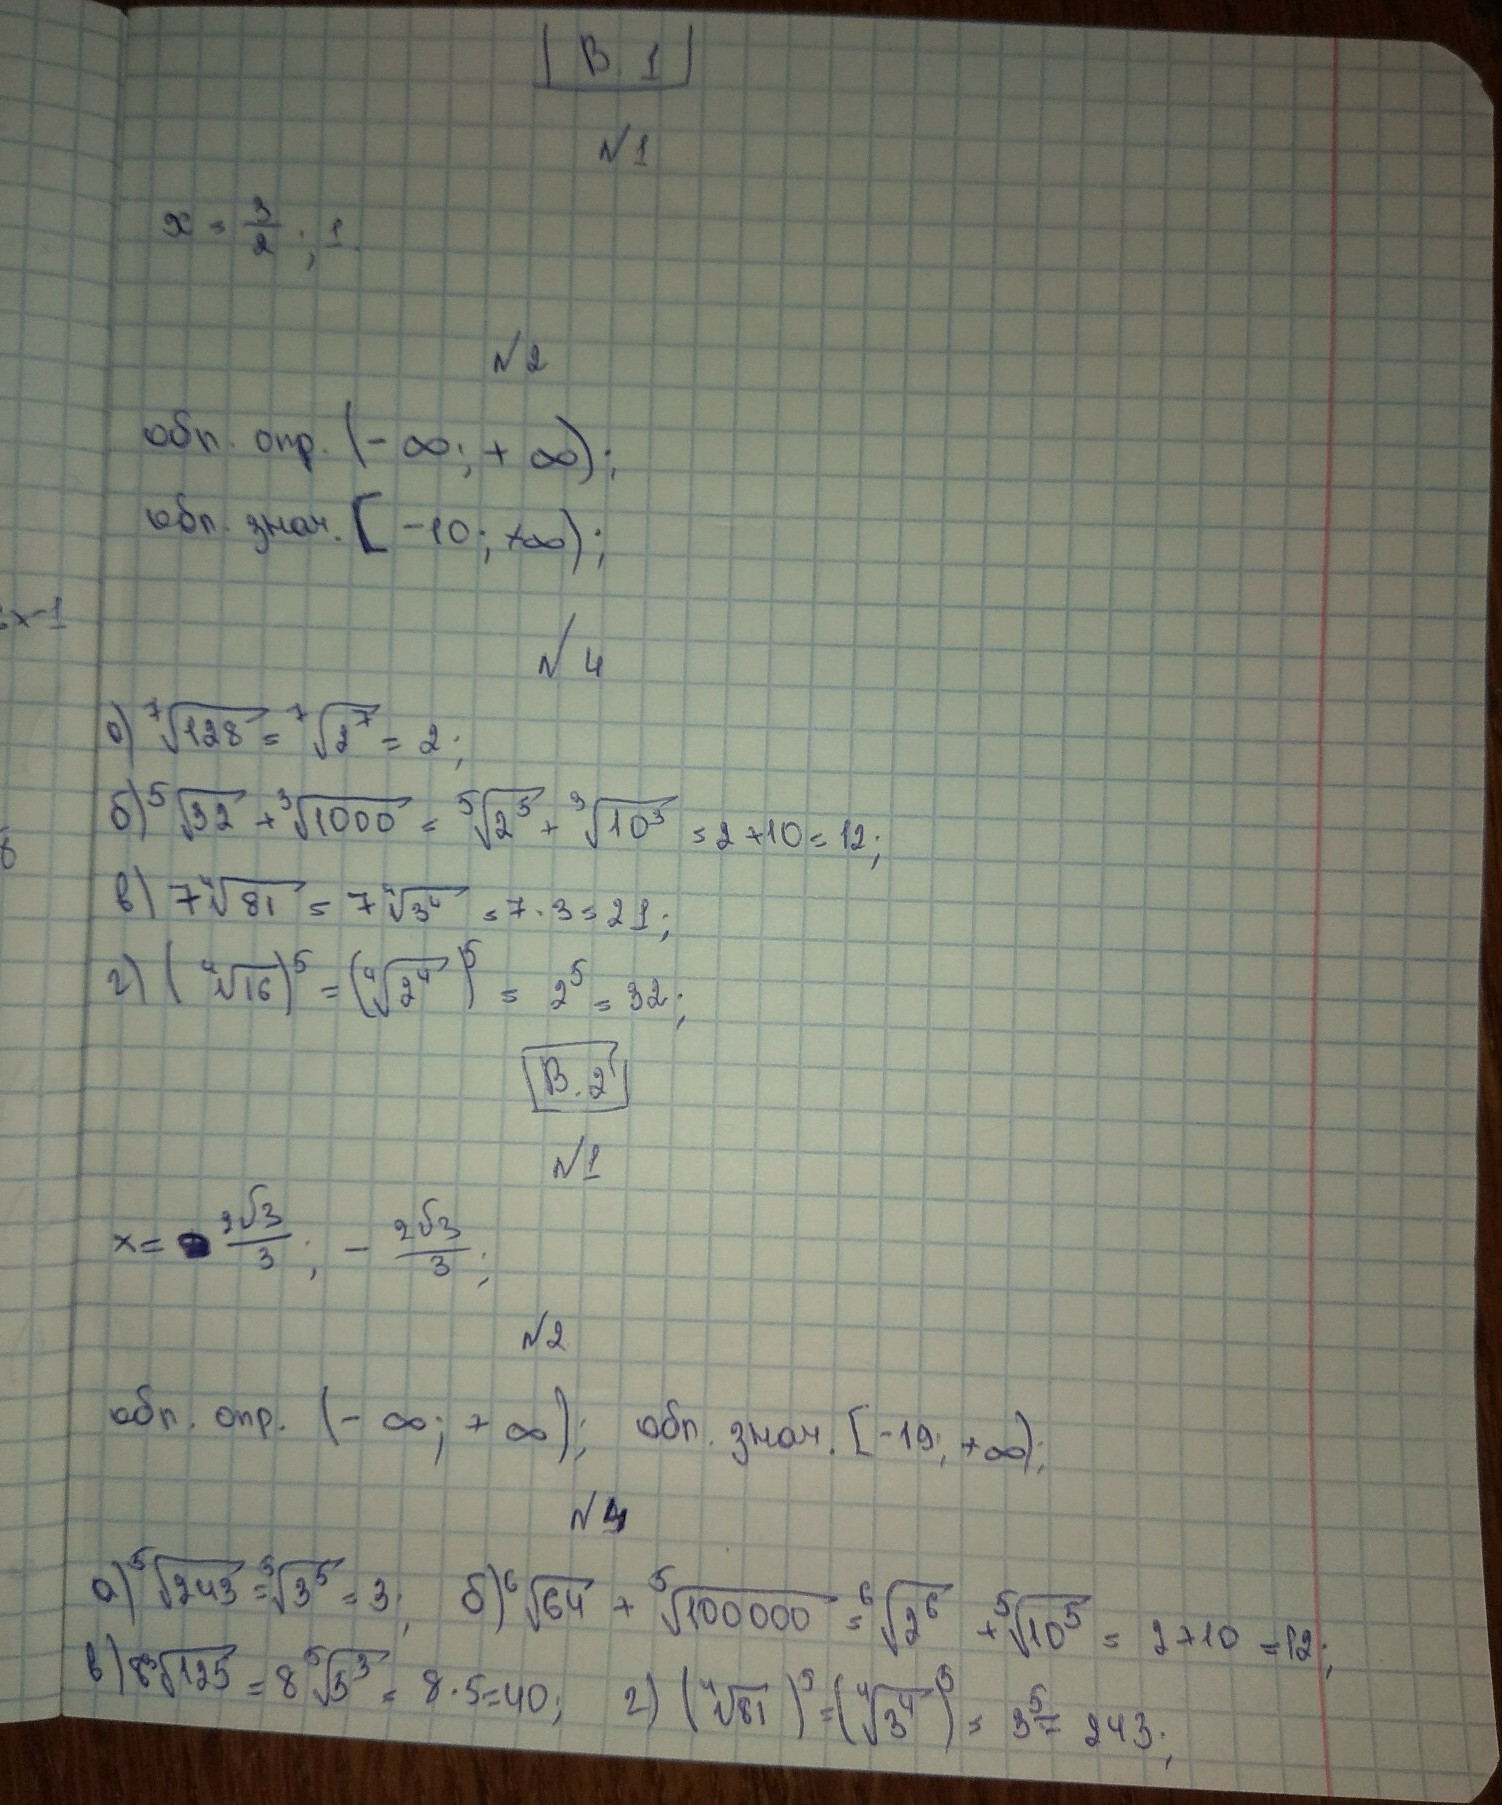 В. 1
№1
x = 3/2 ; 1
№2
обл. опр. (- ∞; + ∞);
обл. знач. [ -10; +∞);
№ 4
а) ⁷√128 = ⁷√2⁷ = 2;
б) ⁵√32 + ³√1000 = ⁵√2⁵ + ³√10³ = 2+10 = 12;
в) 7⁴√81 = 7⁴√3⁴ = 7 · 3 = 21;
г) (⁴√16)⁵ = (⁴√2⁴)⁵ = 2⁵ = 32;
В. 2
№1
x = 2√3/3 ; - 2√3/3 ;
№2
обл. опр. (- ∞; + ∞); обл. знач. [-19; +∞);
№4
а) ⁵√243 = ⁵√3⁵ = 3; б) ⁶√64 + ⁵√100000 = ⁶√2⁶ + ⁵√10⁵ = 2+10 = 12;
в) 8³√125 = 8³√5³ = 8·5=40; г) (⁴√81)⁵ = (⁴√3⁴)⁵ = 3⁵ = 243;
x-1